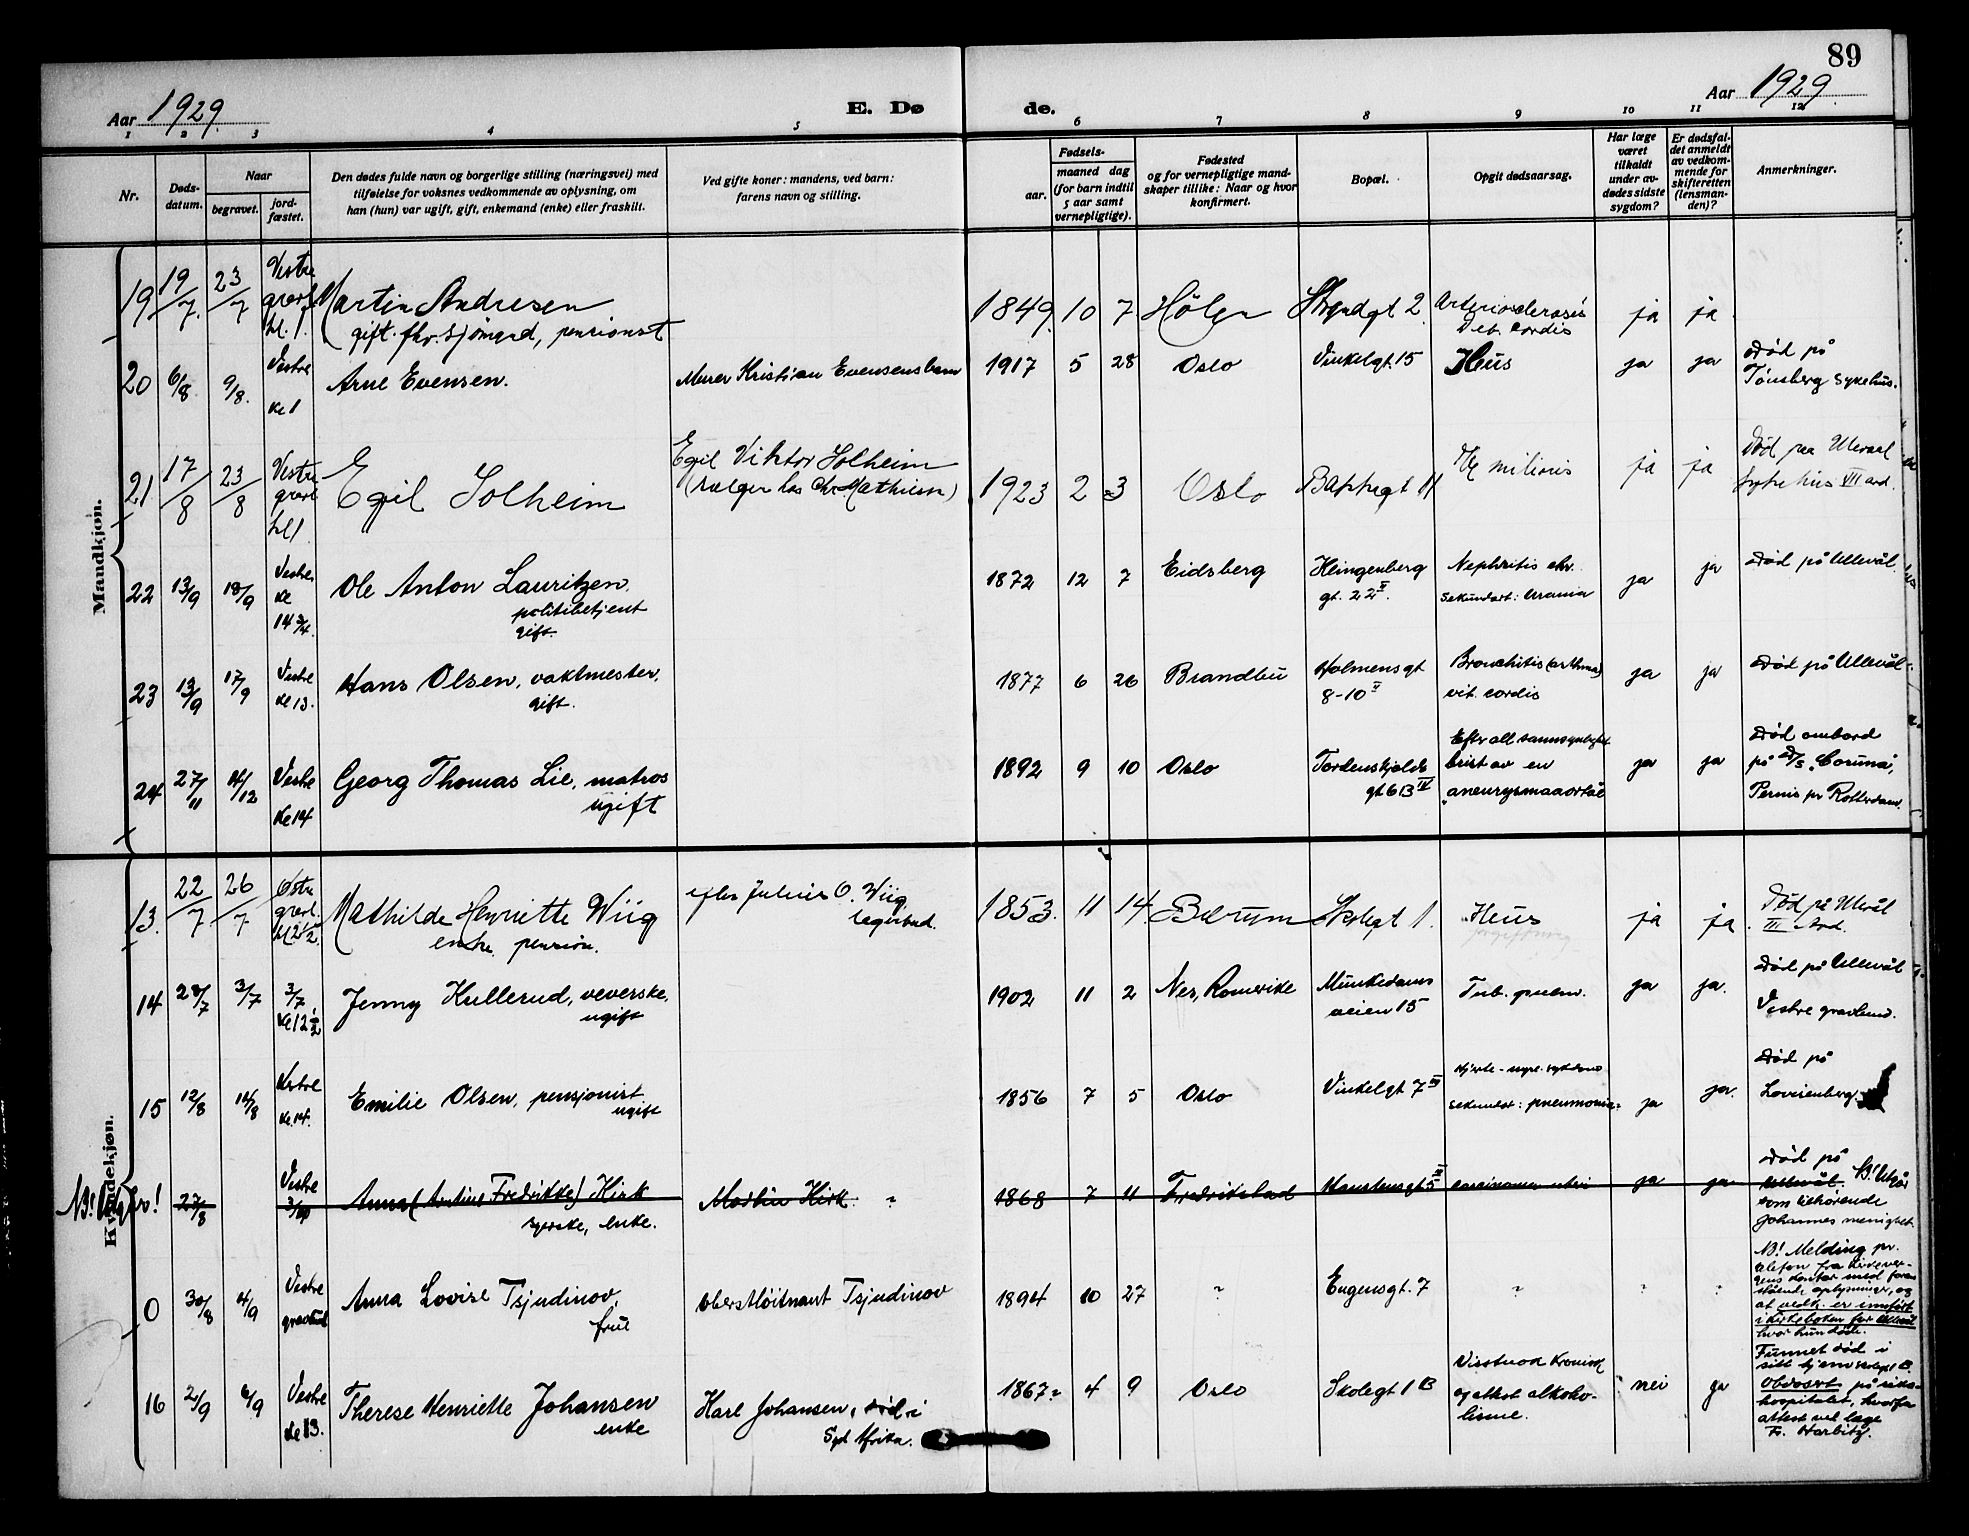 89
Aar 1929.
E. Dø
de.
Aar 1929.
1 2 3 4 5 6 7 8 9 10 11 12
Nr.
Døds-
datum.
Naar
begravet.
jord-
fæstet.
Den dødes fulde navn og borgerlige stilling (næringsvei) med
tilføielse for voksnes vedkommende av oplysning, om
han (hun) var ugift, gift, enkemand (enke) eller fraskilt.
Ved gifte koner: mandens, ved barn:
farens navn og stilling.
Fødsels-
aar.
maaned dag
(for barn indtil
5 aar samt
vernepligtige).
Fødested
og for vernepligtige mand-
skaper tillike: Naar og hvor
konfirmert.
Bopæl.
Opgit dødsaarsag.
Har læge
været
tilkaldt
under av-
dødes sidste
sygdom?
Er dødsfal-
det anmeldt
av vedkom-
mende for
skifteretten
(lensman-
den)?
Anmerkninger.
Mandkjøn.
19 19/7 23/7 Vestre gravl. kl. 1. Martin Andresen 1849 10 7 Hølen Strandgt 2 Arteriosclerosis ja ja
gift. fhv. sjømand, pensionist Deb. cordis
20 6/8 9/8 Vestre kl 1 Arne Evensen. Murer Kristian Evensens barn 1917 5 28 Oslo Vinkelgt. 15 Ileus ja ja Død på
Tønsberg sykehus.
21 17/8 23/8 Vestre gravl kl 1 Egil Solheim Egil Viktor Solheim 1923 2 3 Oslo Bakkegt 11 miliaris ja ja Død paa Ulevaal
(sælger hos Chr. Mathisen) sykehus VII avd.
22 13/9 18/9 Vestre kl 14 3/4. Ole Anton Lauritzen. 1872 12 7 Eidsberg Klingenberg Nephritis chr. ja ja Død på Ullevål
politibetjent gt. 22 II. Sekundært: Uræmia
gift.
23 13/9 17/9 Vestre kl 13. Hans Olsen, vaktmester, 1877 6 26 Brandbu Holmensgt Bronchitis (asthma) ja ja Død på Ullevål
gift. 8-10 V vit. cordis
24 27/11 14/12 Vestre kl 14 Georg Thomas Lie, matros 1892 9 10 Oslo Tordenskjolds Efter all sannsynlighet ja ja Død ombord
ugift gt 6B IV brist av en på D/S "Coruna",
aneurysmaaortae Pernis pr Rotterdam.
Kvindekjøn.
13. 22/7 26/7 Østre gravl. kl 2 1/2. Mathilde Henriette Wiig efter Julius O. Wiig, 1853. 11 14 Bærum Skolegt 1. Ileus ja ja Død på Ulevål
enke pension. lagerbud. forgiftning III Avd.
14 28/7 3/7 3/7 kl 12 1/2 Jenny Kullerud, veverske, 1902 11 2 Nes, Romerike Munkedams Tub. pulm. ja ja. Død på Ullevål
ugift veien 15 Vestre gravlund.
15 12/8 14/8 Vestre kl. 14. Emilie Olsen, pensjonist 1856 7 5 Oslo Vinkelgt 7 III Hjerte-nyre-sykdom ja ja. Død på
ugift Sekundært: pneumonia. Lovisenberg.
NB! Utgår! 27/8 Vestre Anna (Antine Fredrikke) Kirk Martin Kirk 1868 7 11 Fredrikstad carcinoma uteri ja ja Død på
syerske, enke. Ullevål. NB! Utgår
som tilhørende
Johannes menighet.
0 30/8 4/9 Vestre gravlund Anna Lovise Tsjudinov, Oberstløitnant Tsjudinov 1894 10 27 " Eugensgt. 7 " " " NB! Melding pr.
frue telefon fra kirkever-
gens kontor med foran-
stående oplysninger, og
at vedk. er innført
i kirkeboken for Ullevål
hvor hun døde.
16 2/9 6/9 Vestre kl 13. Therese Henriette Johansen Karl Johansen, død i 1867 4 9 Oslo Skolegt 1 B Visstnok kronisk nei ja Funnet død i
enke Syd Afrika. og attest alkoho- sitt hjem Skolegt 1 B.
lisme. Obdusert på riks-
hospitalet, hvorfra
attest ved læge
Fr. Harbitz.